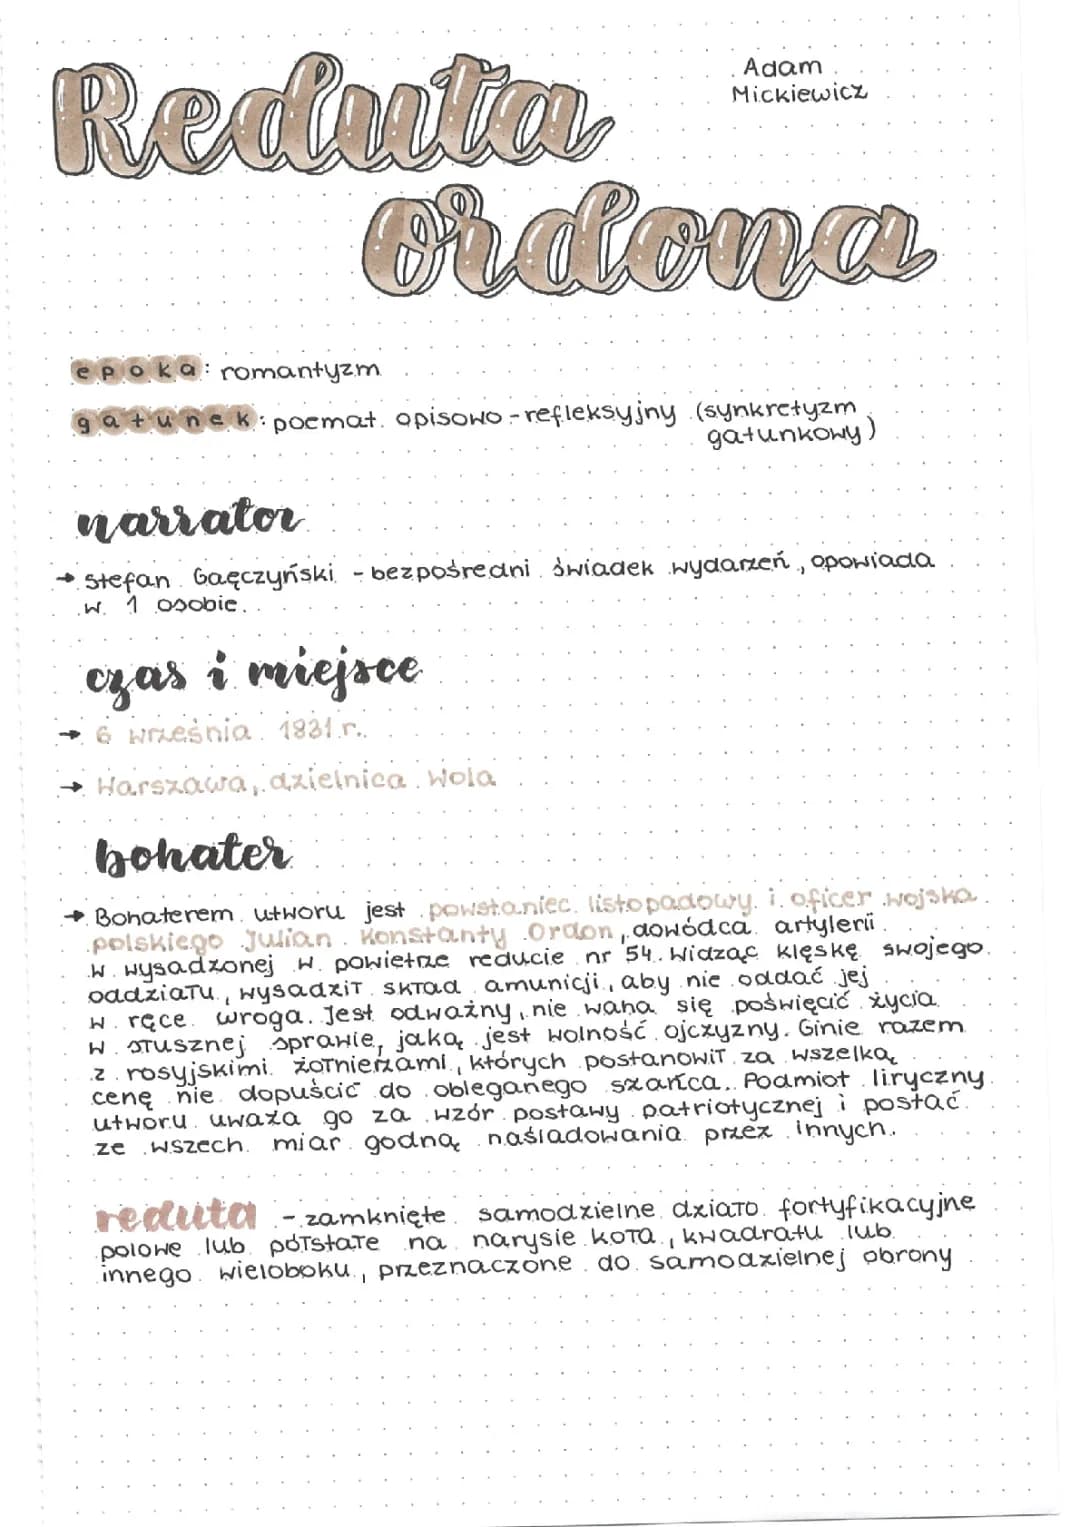 Reduta
Adam
Mickiewicz
Ordona
epoka: romantyzm
gatunek: poemat opisowo-refleksyjny (synkretyzm
gatunkowy)
narrator
→ Stefan Gaęczyński - bezpośredni świadek wydarzeń, opowiada
w 1 osobie.
czas i miejsce
→ 6 września 1831 r.
→ Warszawa, dzielnica Wola
bohater
→ Bohaterem utworu jest powstaniec listopadowy i oficer wojska
polskiego Julian Konstanty Ordon, dowódca artylerii
w wysadzonej w powietrze reducie nr 54. Widząc klęskę swojego
oddziału, wysadził skład amunicji, aby nie oddać jej
w ręce wroga. Jest odważny, nie waha się poświęcić życia
w słusznej sprawie, jaką jest wolność ojczyzny. Ginie razem
z rosyjskimi żołnierzami, których postanowił za wszelką
cenę nie dopuścić do obleganego szańca. Podmiot liryczny
utworu uważa go za wzór postawy patriotycznej i postać
ze wszech miar godną naśladowania przez innych.
reduta - zamknięte samodzielne działo fortyfikacyjne
polowe lub półstałe na narysie koła, kwadratu lub
innego wieloboku, przeznaczone do samodzielnej obrony